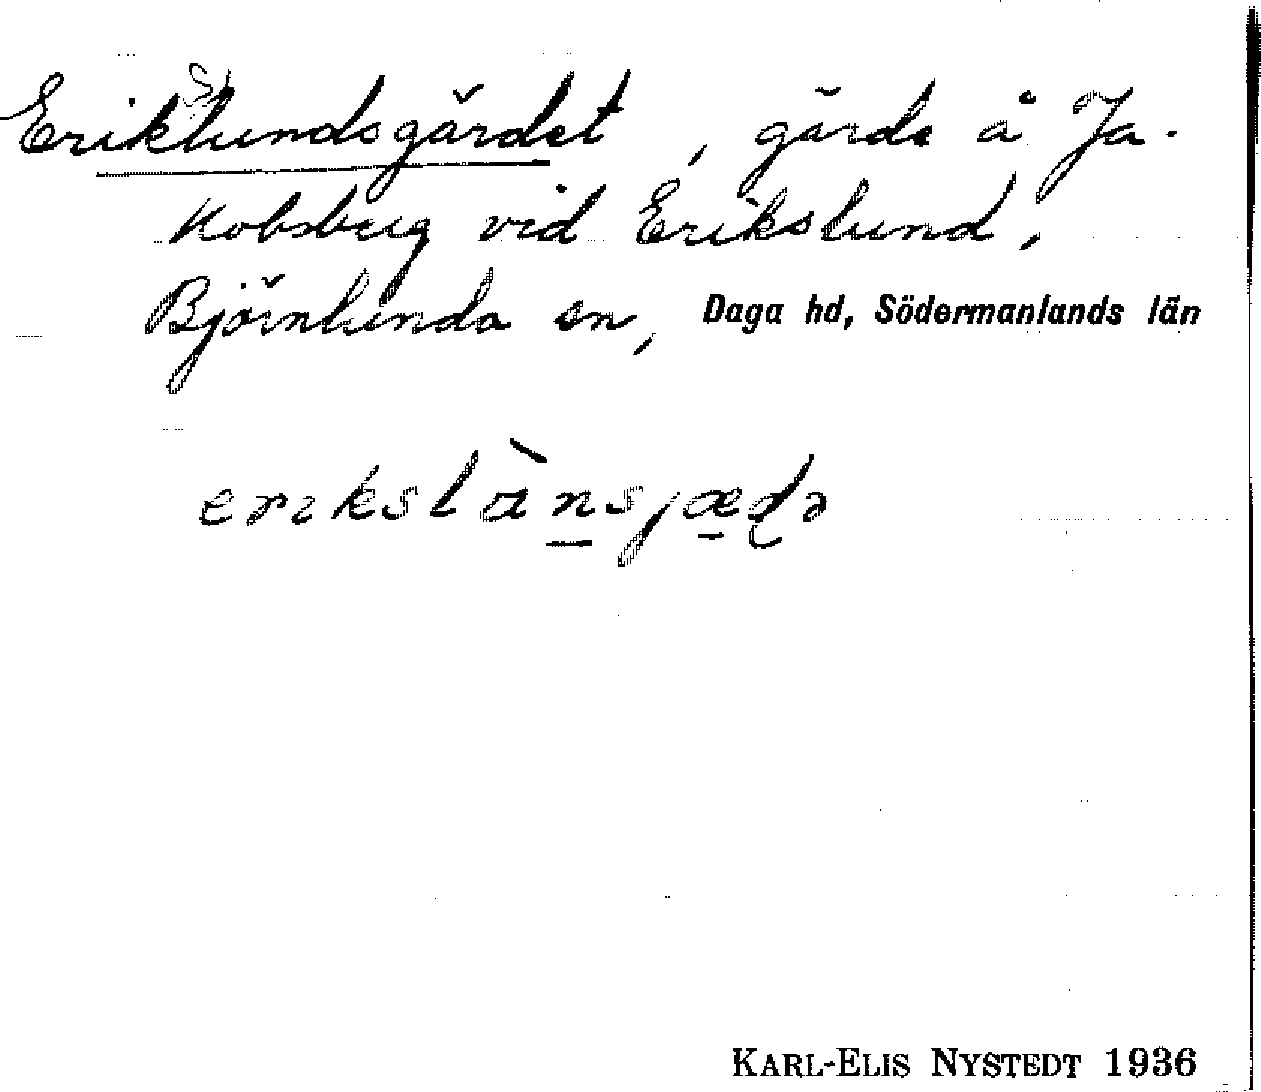 Erikslundsgärdet, gärde å Ja-
kobsberg vid Erikslund,
Björnlunda sn, Daga hd, Södermanlands län
KARL-ELIS NYSTEDT 1936